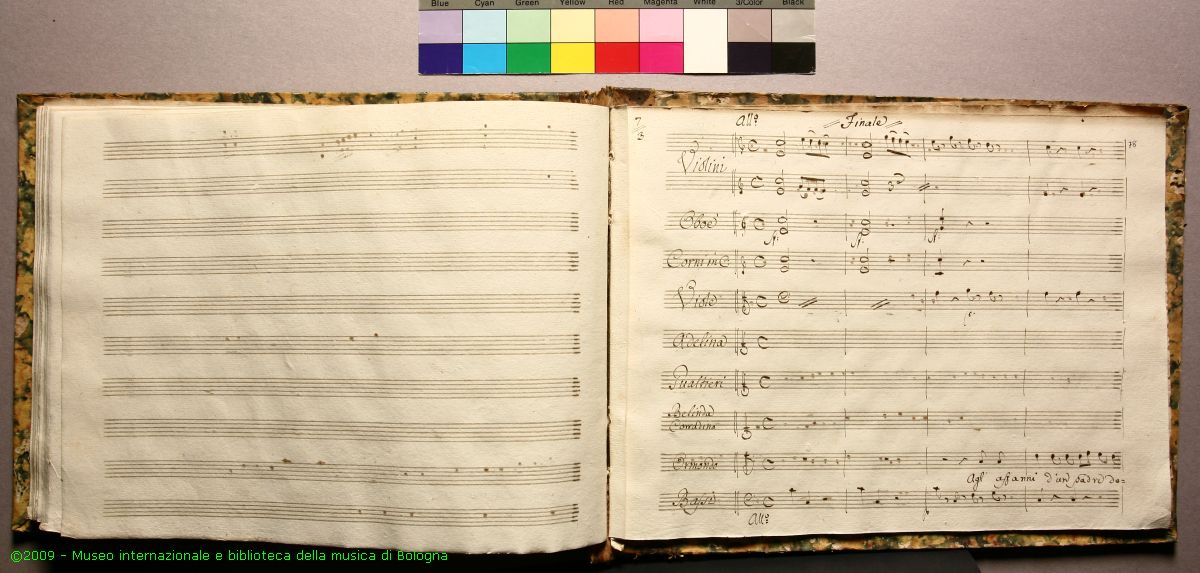 Blue Cyan Green Yellow Red Magenta White 3/Color Black
7
3
All⁰ Finale
78
Violini
Oboè
Corni in C
Viole
Adelina
Gualtieri
Belinda
Corradino
Ormondo
Agl' affanni d'un padre do=
Bassi
All⁰
©2009 - Museo internazionale e biblioteca della musica di Bologna